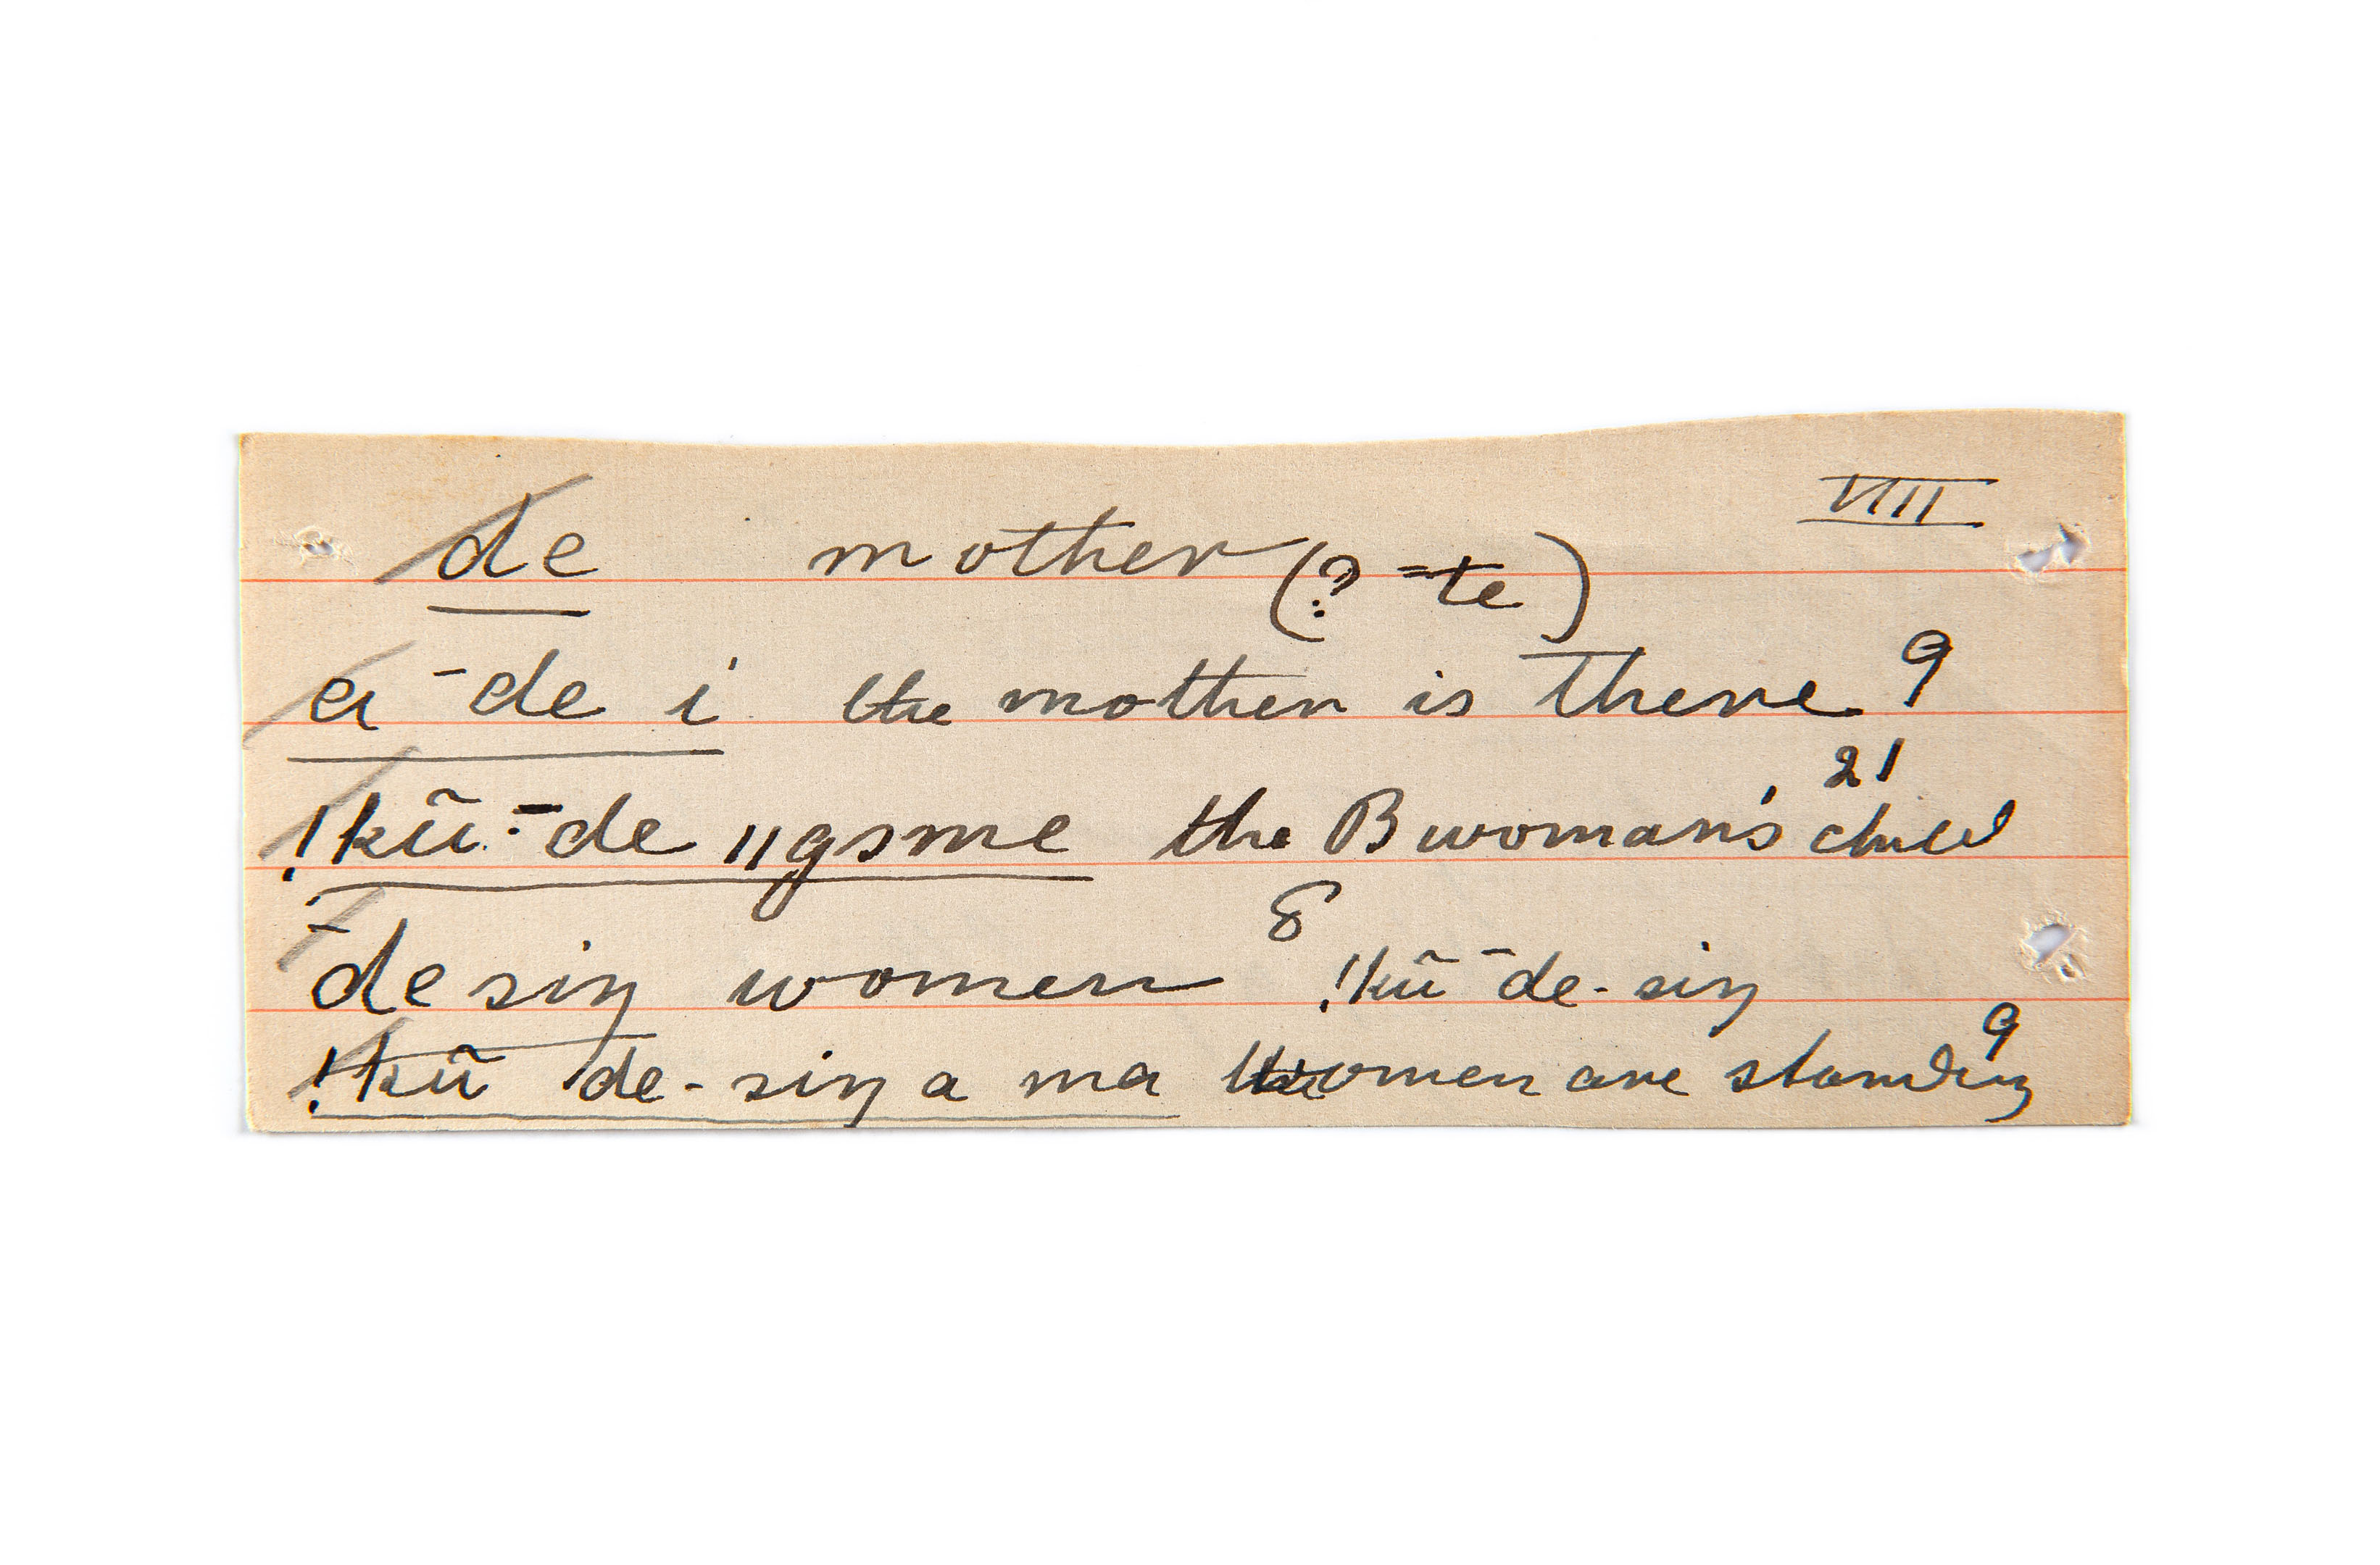 VIII
de mother (? ⁼te)
a ⁻de i the mother is there 9
!kũ ⁻de ǁgsme the B woman's child 21
⁻de siŋ women 8 !kũ ⁻de-siŋ
!kũ de-siŋ a ma women are standing 9